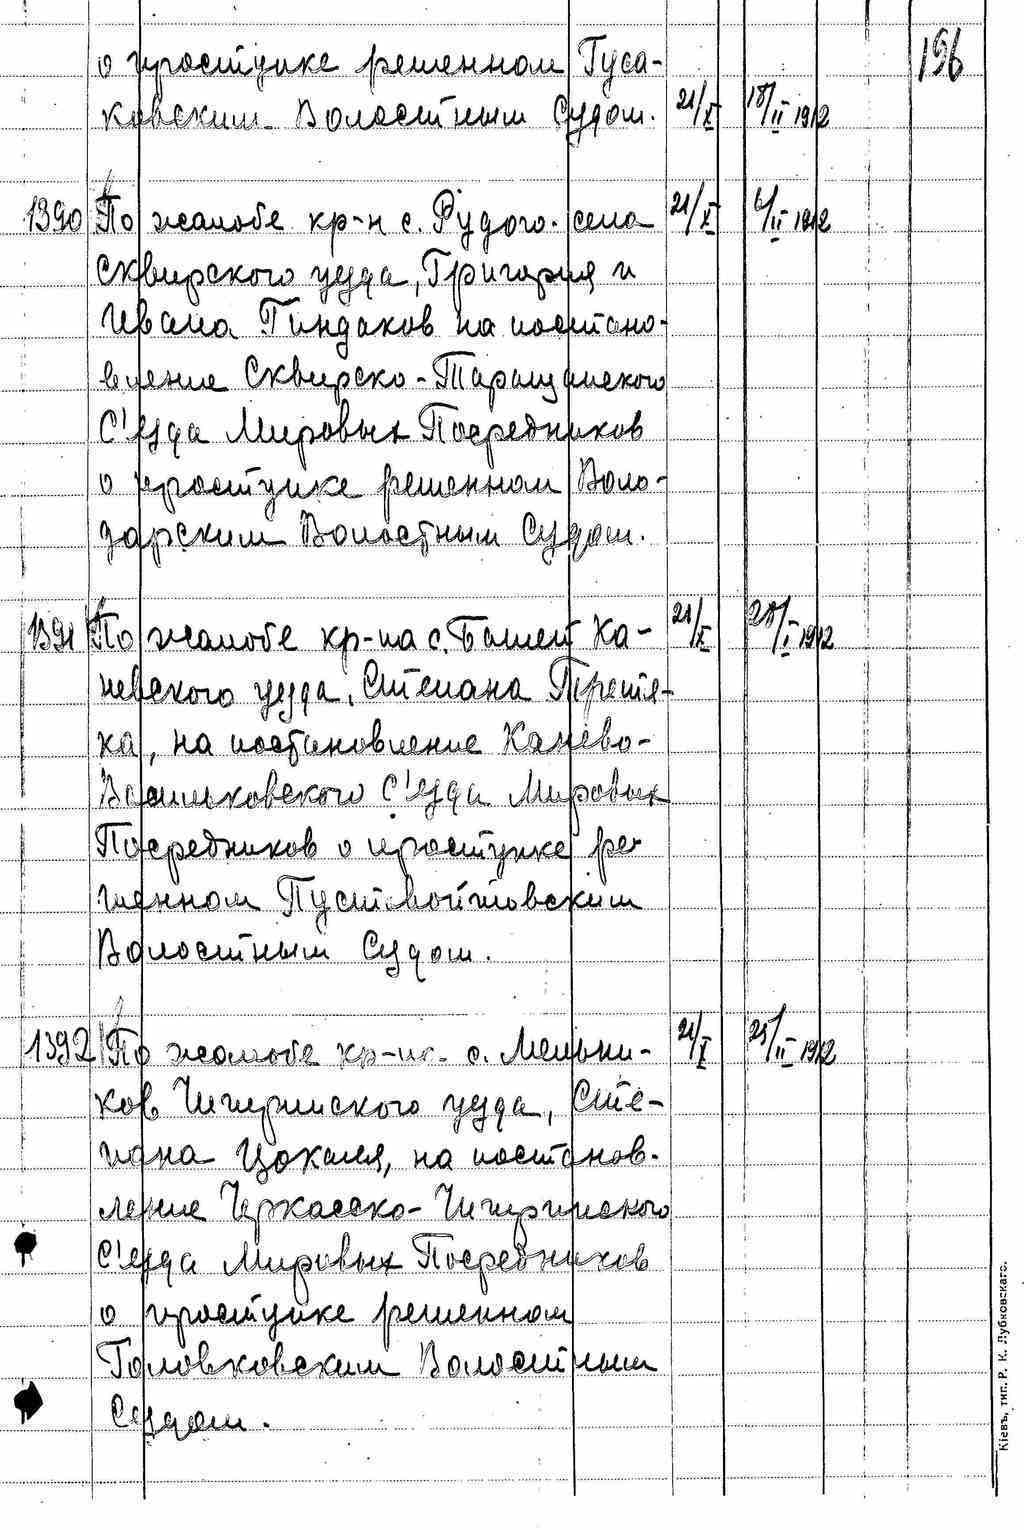 196
о проступке решенном Гуса-
ковским Волостным Судом. 21/X 18/II 1912
1390 По жалобе кр-н с. Рудого села 21/X 6/II 1912
Сквирского уезда, Григория и
Ивана Гиндаков на постано-
вление Сквирско-Таращанского
С'езда Мировых Посредников
о проступке решенном Воло-
дарским Волостным Судом.
1391 По жалобе кр-на с. Ка- 21/X 28/I 1912
невского уезда, Степана Третя-
ка, на постановление Канево-
Васильковского С'езда Мировых
Посредников о проступке ре-
шенном Пустовойтовским
Волостным Судом.
1392 По жалобе кр-на с. Мельни- 21/X 25/II 1912
ков Чигиринского уезда, Сте-
пана Цокаля, на постанов-
ление Черкасско-Чигиринского
С'езда Мировых Посредников
о проступке решенном
Головковским Волостным
Судом.
Кіевъ, тип. Р. К. Лубковскаго.